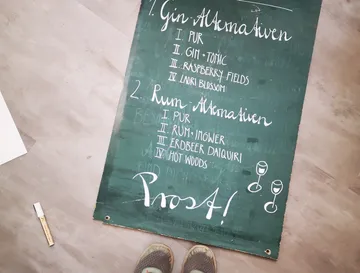 1. Gin-Alternativen
I. PUR
II. GIN-TONIC
III. RASPBERRY FIELDS
IV. BLOSSOM
2. Rum-Alternativen
I PUR
II RUM-INGWER
III ERDBEER DAIQUIRI
IV HOT WOODS
Prost!